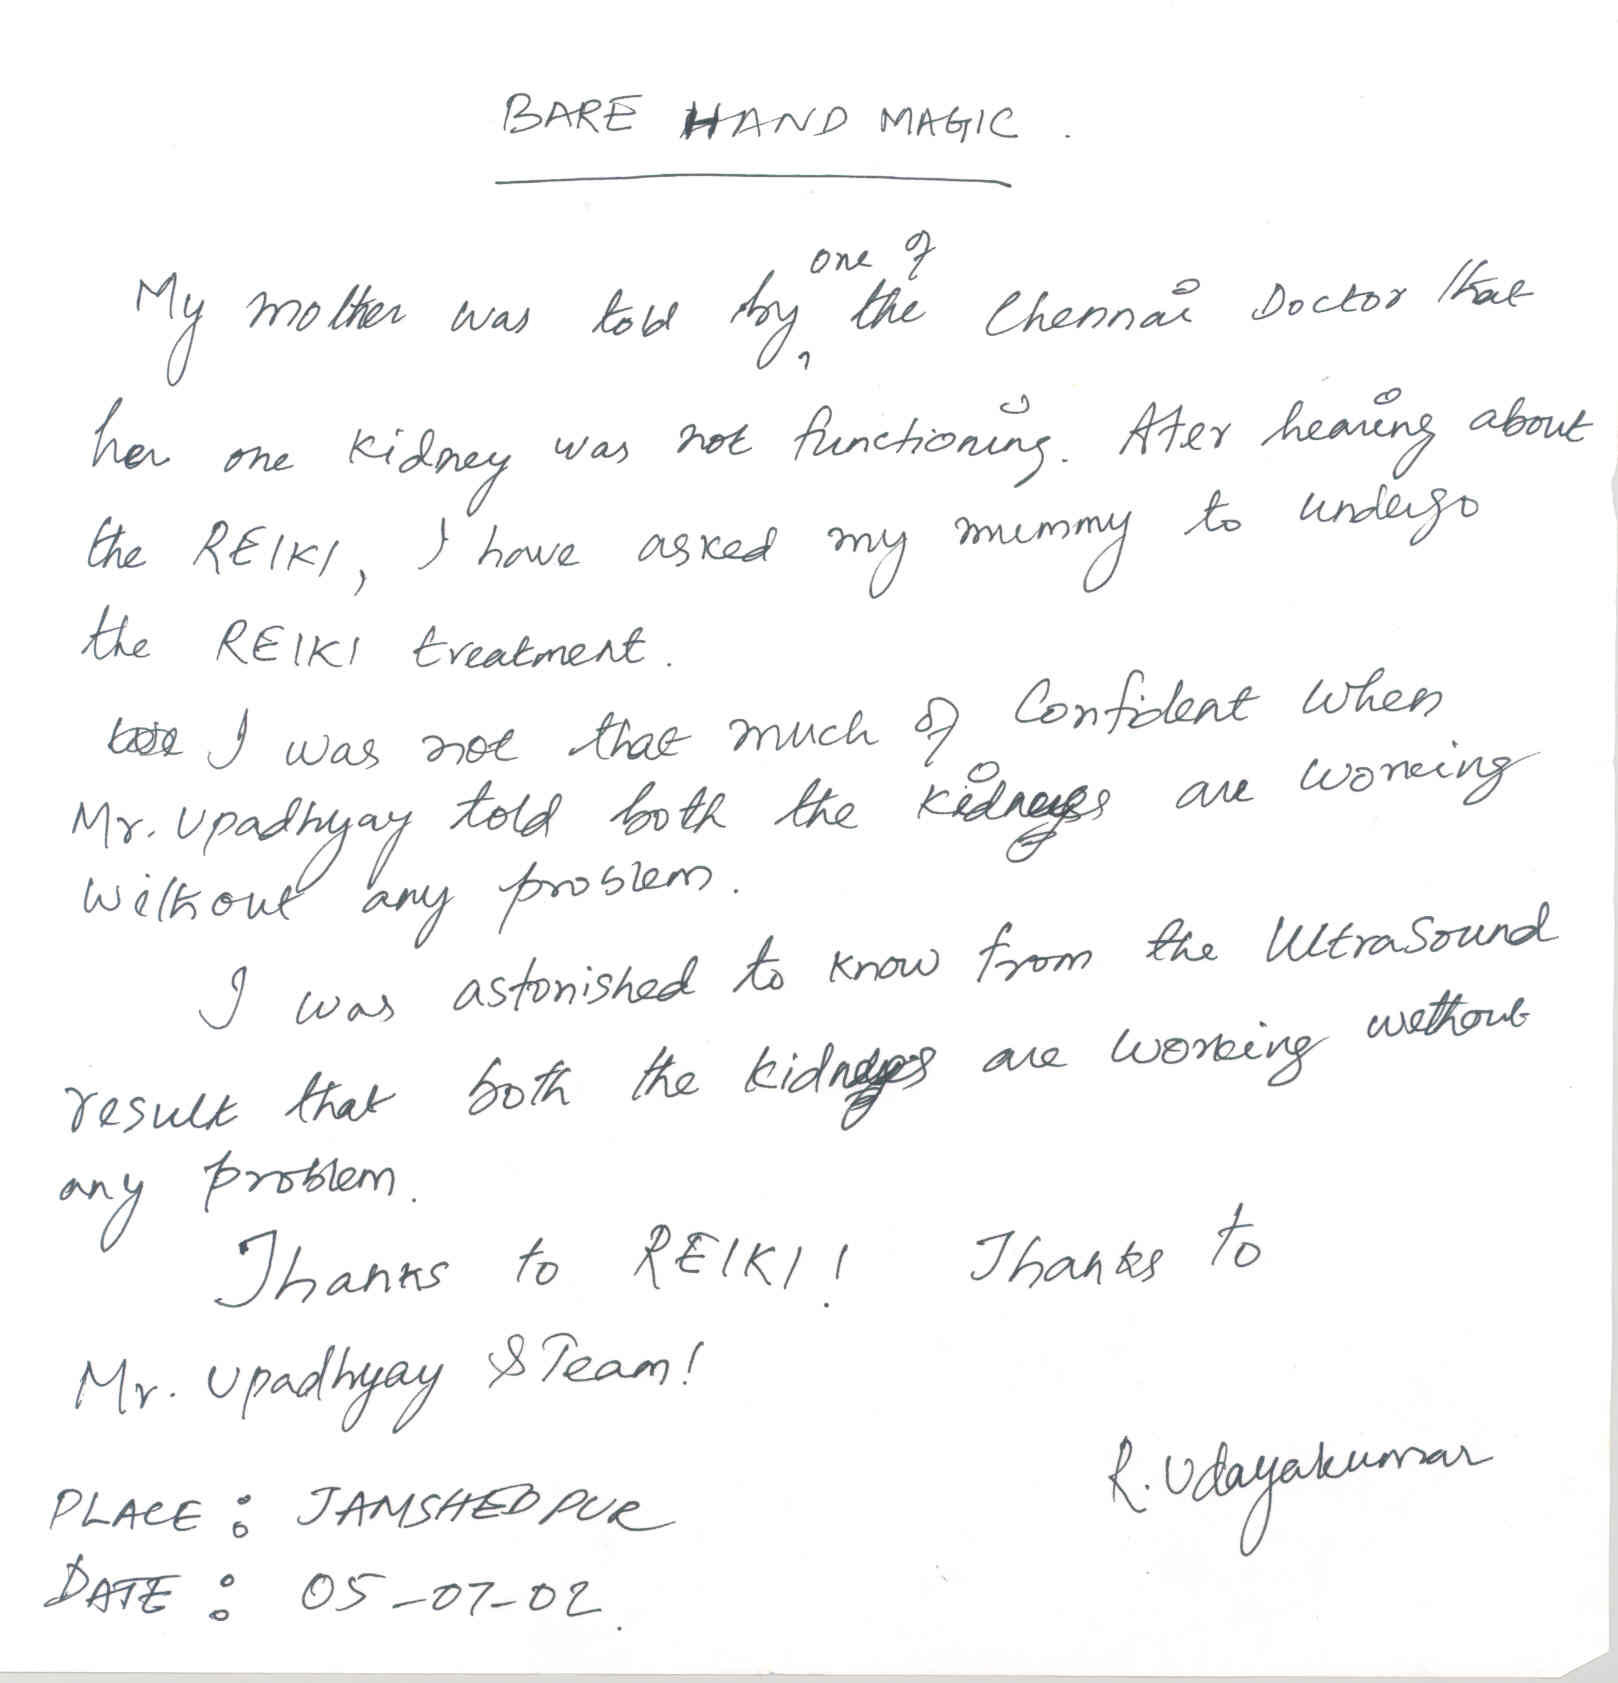 BARE HAND MAGIC.
My mother was told by one of the Chennai Doctor that
her one kidney was not functioning. Ater hearing about
the REIKI, I have asked my mummy to undergo
the REIKI treatment.
I was not that much of Confident when
Mr. Upadhyay told both the kidneys are working
without any problem.
I was astonished to know from the UltraSound
result that both the kidneys are working without
any problem.
Thanks to REIKI! Thanks to
Mr. Upadhyay & Team!
R. Udayakumar
PLACE : JAMSHEDPUR
DATE : 05-07-02.